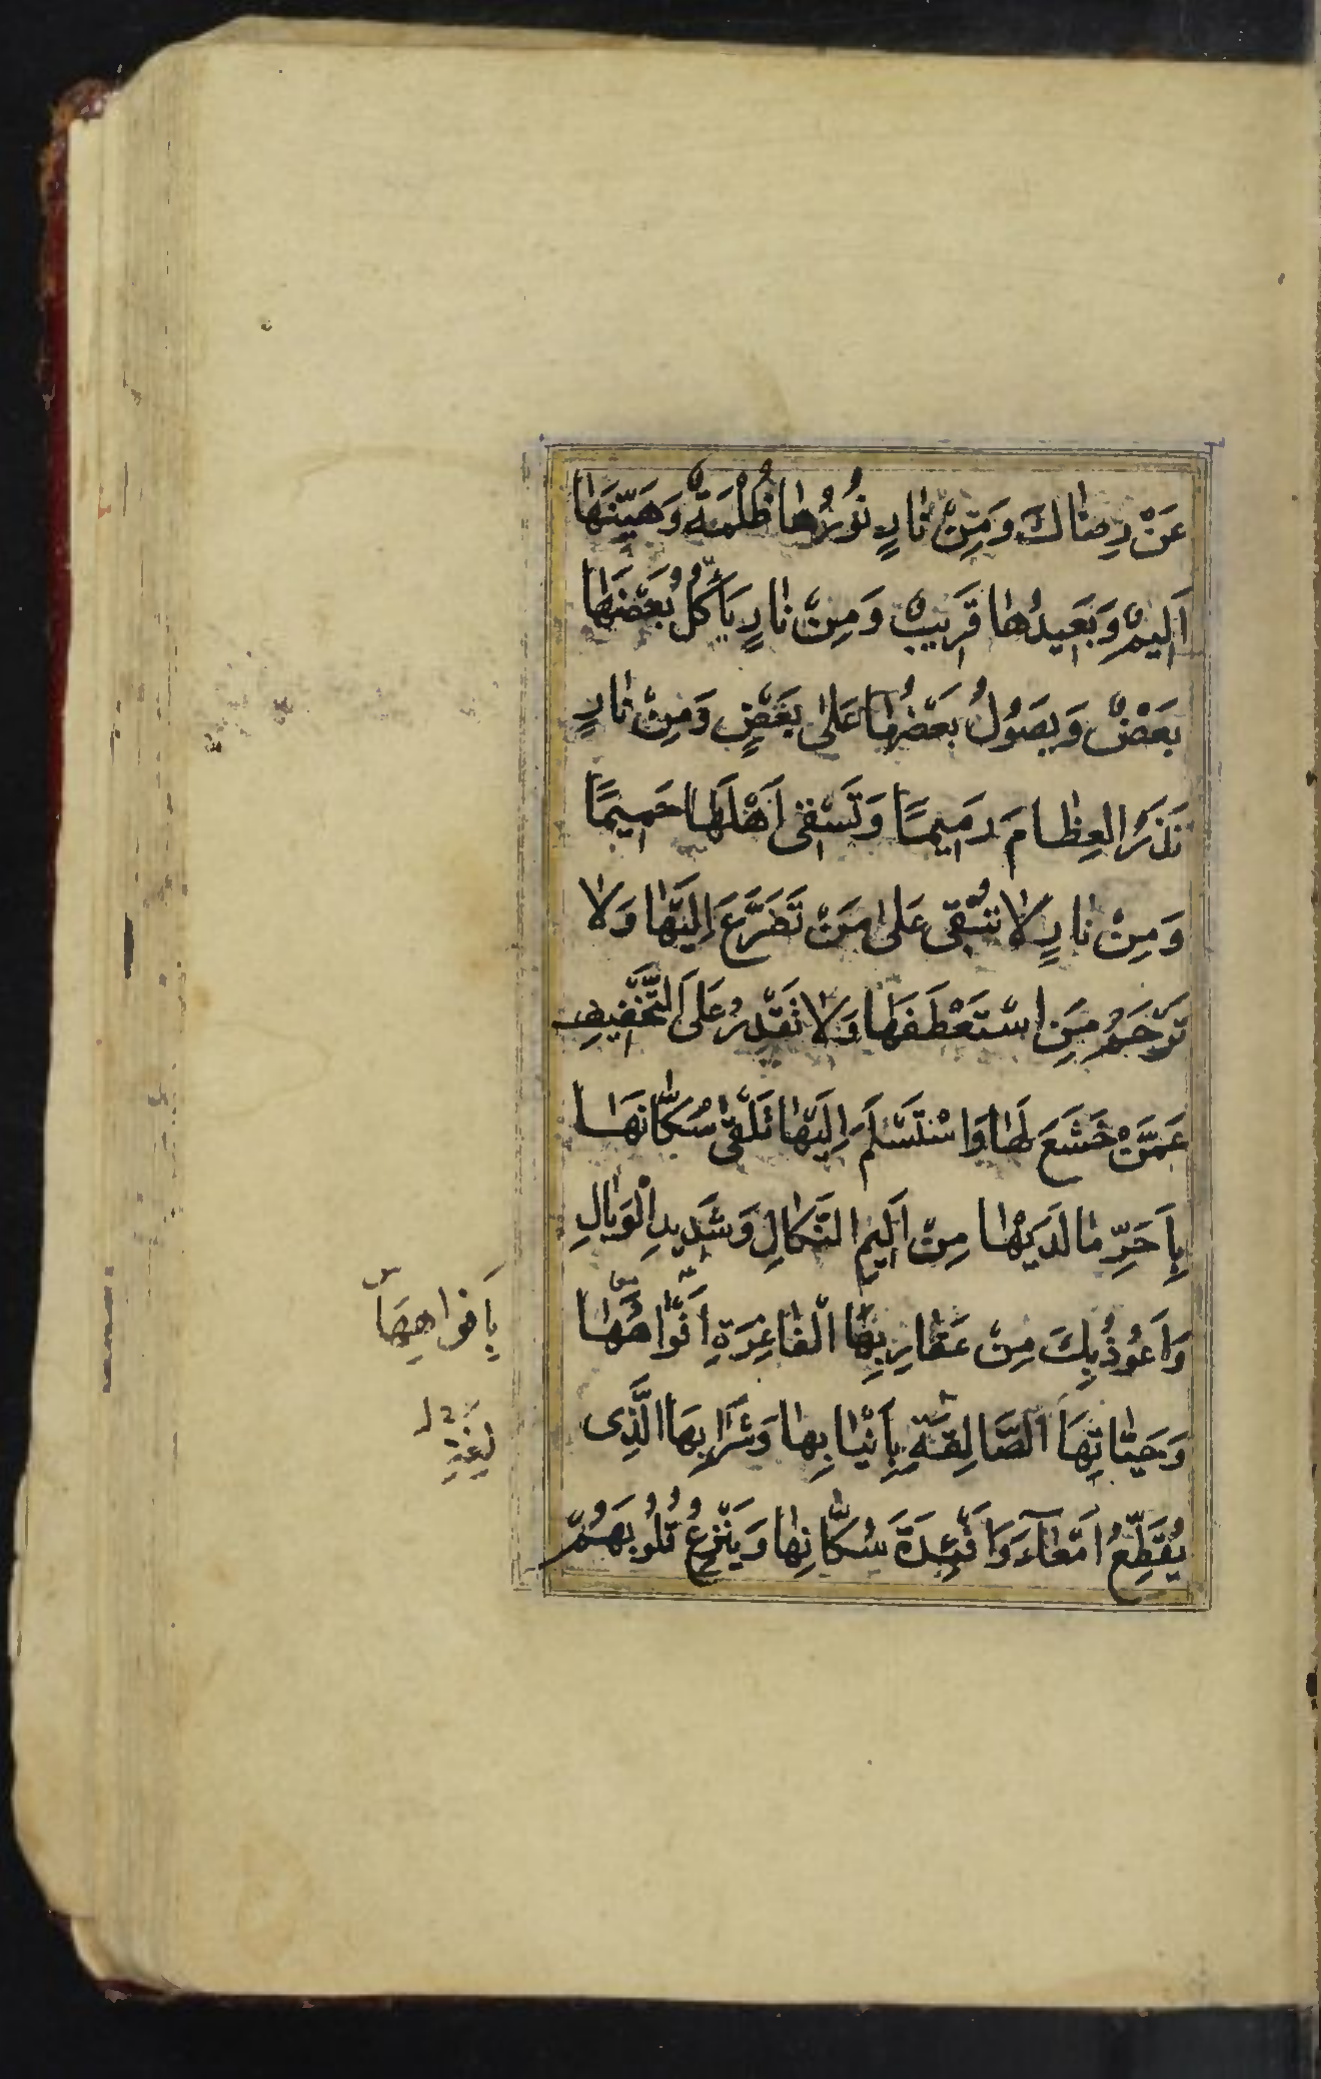 عَنْ رِضاكَ وَمِنْ نارٍ نُورُها ظُلْمَةٌ وَهَيِّنُها
اَلِيمٌ وَبَعِيدُها قَرِيبٌ وَمِنْ نارٍ يَأْكُلُ بَعْضَها
بَعْضٌ وَيَصُولُ بَعْضُها عَلى بَعْضٍ وَمِنْ نارٍ
تَذَرُ العِظامَ رَمِيمًا وَتَسْقى اَهْلَها حَمِيمًا
وَمِنْ نارٍ لا تُبْقى عَلى مَنْ تَضَرَّعَ اِلَيْها وَلا
تَرْحَمُ مَنِ اسْتَعْطَفَها وَلا تَقْدِرُ عَلَى التَّخْفِيفِ
عَمَّنْ خَشَعَ لَها وَاسْتَسْلَمَ اِلَيْها تَلْقى سُكّانَها
بِاَحَرِّ ما لَدَيْها مِنْ اَلِيمِ النَّكالِ وَشَدِيدِ الْوَبالِ
وَاَعُوذُ بِكَ مِنْ عَقارِبِهَا الْفاغِرَةِ اَفْواهُها
وَحَيّاتِهَا الصّالِقَةِ بِاَنْيابِها وَشَرابِهَا الَّذِى
يُقَطِّعُ اَمْعاءَ وَاَفْئِدَةَ سُكّانِها وَيَنْزِعُ قُلُوبَهُمْ
بِاَفواهِهَا س